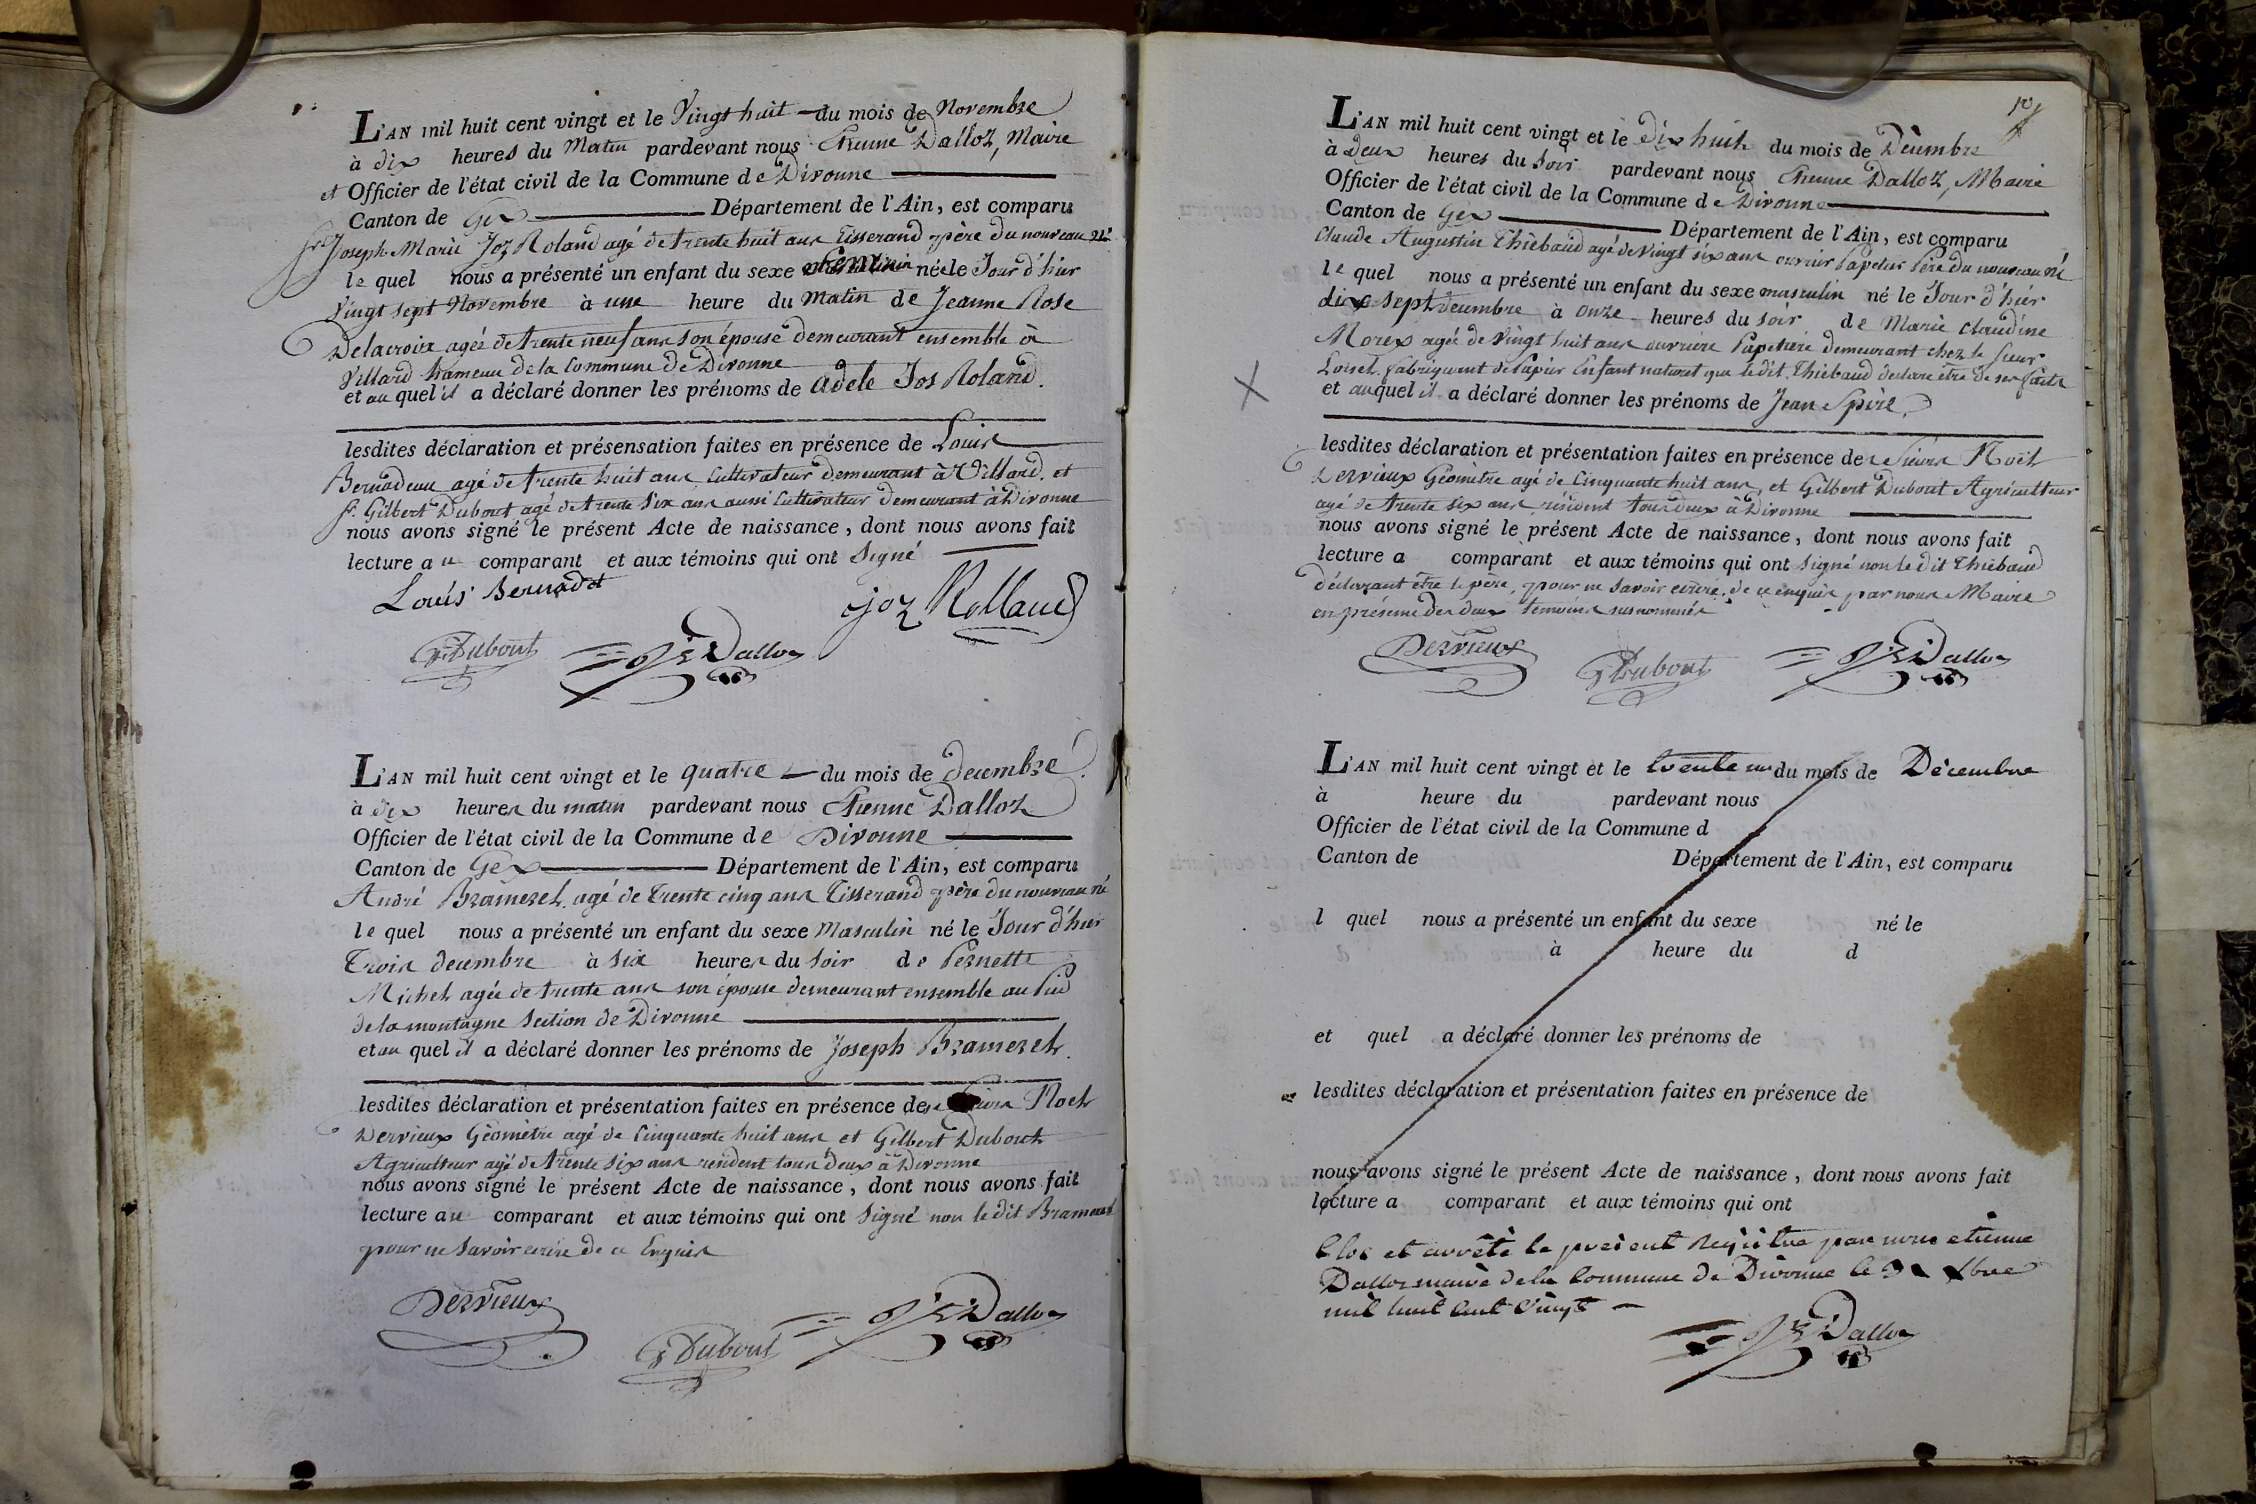 L'AN mil huit cent vingt et le Vingt huit du mois de Novembre
à dix heures du Matin pardevant nous Etienne Dalloz, Maire
et Officier de l'état civil de la Commune de Divonne
Canton de Gex Département de l'Ain, est comparu
Joseph Marie Joz Roland agé de trente huit ans Tisserand père du nouveau né
le quel nous a présenté un enfant du sexe féminin née le Jour d'hier
Vingt sept Novembre à une heure du Matin de Jeanne Rose
Delacroix agée de trente neuf ans son épouse demeurant ensemble à
Villard hameau de la Commune de Divonne
et au quel il a déclaré donner les prénoms de adele Jos Roland.
lesdites déclaration et présensation faites en présence de Louis
Bernadeau agé de trente huit ans Cultivateur demeurant à Villard. et
sr. Gilbert Dubout agé de trente Six ans aussi Cultivateur demeurant à Divonne
nous avons signé le présent Acte de naissance, dont nous avons fait
lecture au comparant et aux témoins qui ont Signé
Louis Bernadet
Joz Rolland
G Dubout
Dalloz
L'AN mil huit cent vingt et le quatre du mois de decembre
à dix heures du matin pardevant nous Etienne Dalloz
Officier de l'état civil de la Commune de Divonne
Canton de Gex Département de l'Ain, est comparu
André Brameret agé de Trente cinq ans Tisserand père du nouveau né
le quel nous a présenté un enfant du sexe Masculin né le Jour d'hier
Trois decembre à six heures du soir de Pernette
Michel agée de trente ans son épouse demeurant ensemble au Pied
de la montagne Section de Divonne
et au quel il a déclaré donner les prénoms de Joseph Brameret.
lesdites déclaration et présentation faites en présence des Sieurs Noel
Dervieux Géomètre agé de Cinquante huit ans et Gilbert Dubout
Agriculteur agé de trente six ans resident tous deux à Divonne
nous avons signé le présent Acte de naissance, dont nous avons fait
lecture au comparant et aux témoins qui ont Signé non le dit Brameret
pour ne Savoir ecrire de ce Enquis
Dervieux
G Dubout
Dalloz
L'AN mil huit cent vingt et le dix huit du mois de Décembre
à Deux heures du Soir pardevant nous Etienne Dalloz, Maire
Officier de l'état civil de la Commune de Divonne
Canton de Gex Département de l'Ain, est comparu
Claude Augustin Thiébaud agé de Vingt six ans ouvrier Papetier Père du nouveau né
le quel nous a présenté un enfant du sexe masculin né le Jour d'hier
dix-sept decembre à onze heures du soir de Marie Claudine
Morex agée de Vingt huit ans ouvriere Papetiere demeurant chez le Sieur
Loisel fabriquent de Papier Enfant naturel que le dit Thiébaud declare être de ses faits
et auquel il a déclaré donner les prénoms de Jean Spire.
lesdites déclaration et présentation faites en présence des Sieurs Noël
Dervieux Géomètre agé de Cinquante huit ans, et Gilbert Dubout Agriculteur
agé de trente six ans résident tous deux à Divonne
nous avons signé le présent Acte de naissance, dont nous avons fait
lecture a comparant et aux témoins qui ont Signé non le dit Thiébaud
déclarant être le père, pour ne savoir ecrire. de ce enquis par nous Maire
en présence des deux témoins susnommés
Dervieux
G Dubout
Dalloz
L'AN mil huit cent vingt et le trente un du mois de Décembre
à heure du pardevant nous
Officier de l'état civil de la Commune d
Canton de Département de l'Ain, est comparu
l quel nous a présenté un enfant du sexe né le
à heure du d
et quel a déclaré donner les prénoms de
lesdites déclaration et présentation faites en présence de
nous avons signé le présent Acte de naissance, dont nous avons fait
lecture a comparant et aux témoins qui ont
Clos et arrêté le présent Registre par nous etienne
Dalloz maire de la Commune de Divonne le 31 Xbre
mil huit Cent Vingt
Dalloz